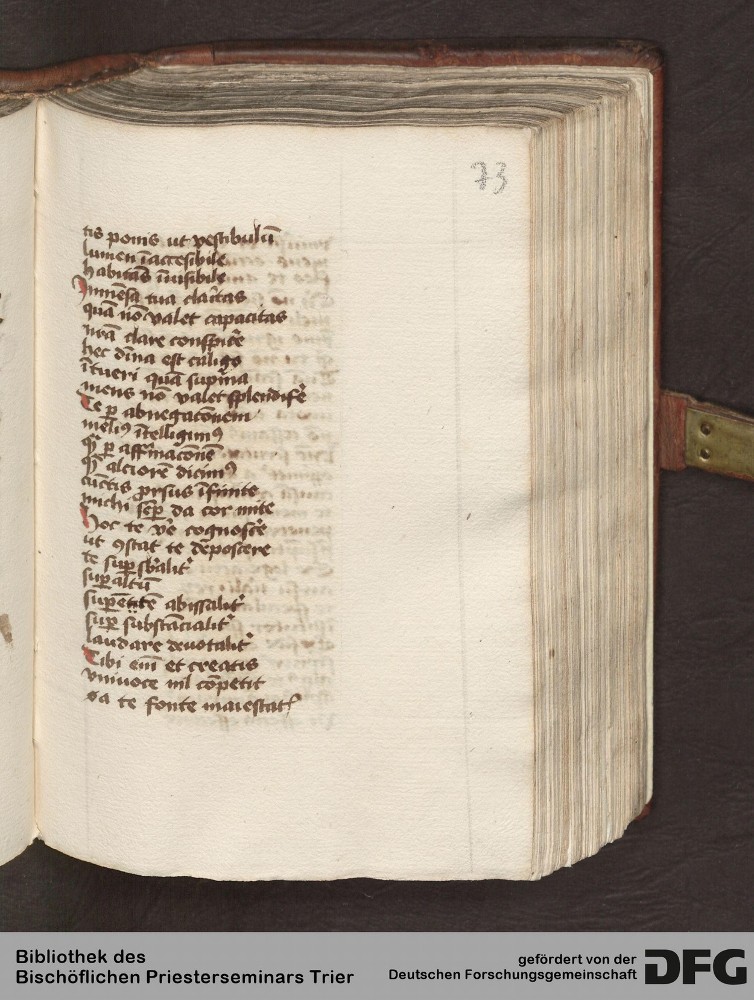 73
tis ponis ut vestibulū
lumen īaccesibile
habitās īuisibile
Jmmēsa tua clāitas
quā nō valet capacitas
nr̄ā clare conspicē
hec dīna est caligo
ītueri quā sup̄na
mens nō valet splendifē
Te ꝑ abnegacōnem
meliꝰ ītelligimꝰ
qͣ ꝑ affīmacōnē
qͣ alciorē dicimꝰ
cūctis ꝓrsus īfinite
michi semꝑ da cor mite
Hoc te v̄e cognoscē
ut ꝯstat te deposcere
te suꝑ
suꝑaltū
suꝑētitē abissalit᷑
suꝑ substācialit᷑
laudare deuotalit᷑
Tibi em̄ et creatis
vniuoce nil cōpetit
sa te fonte maiestat
Bibliothek des
Bischöflichen Priesterseminars Trier
gefördert von der
Deutschen Forschungsgemeinschaft
DFG